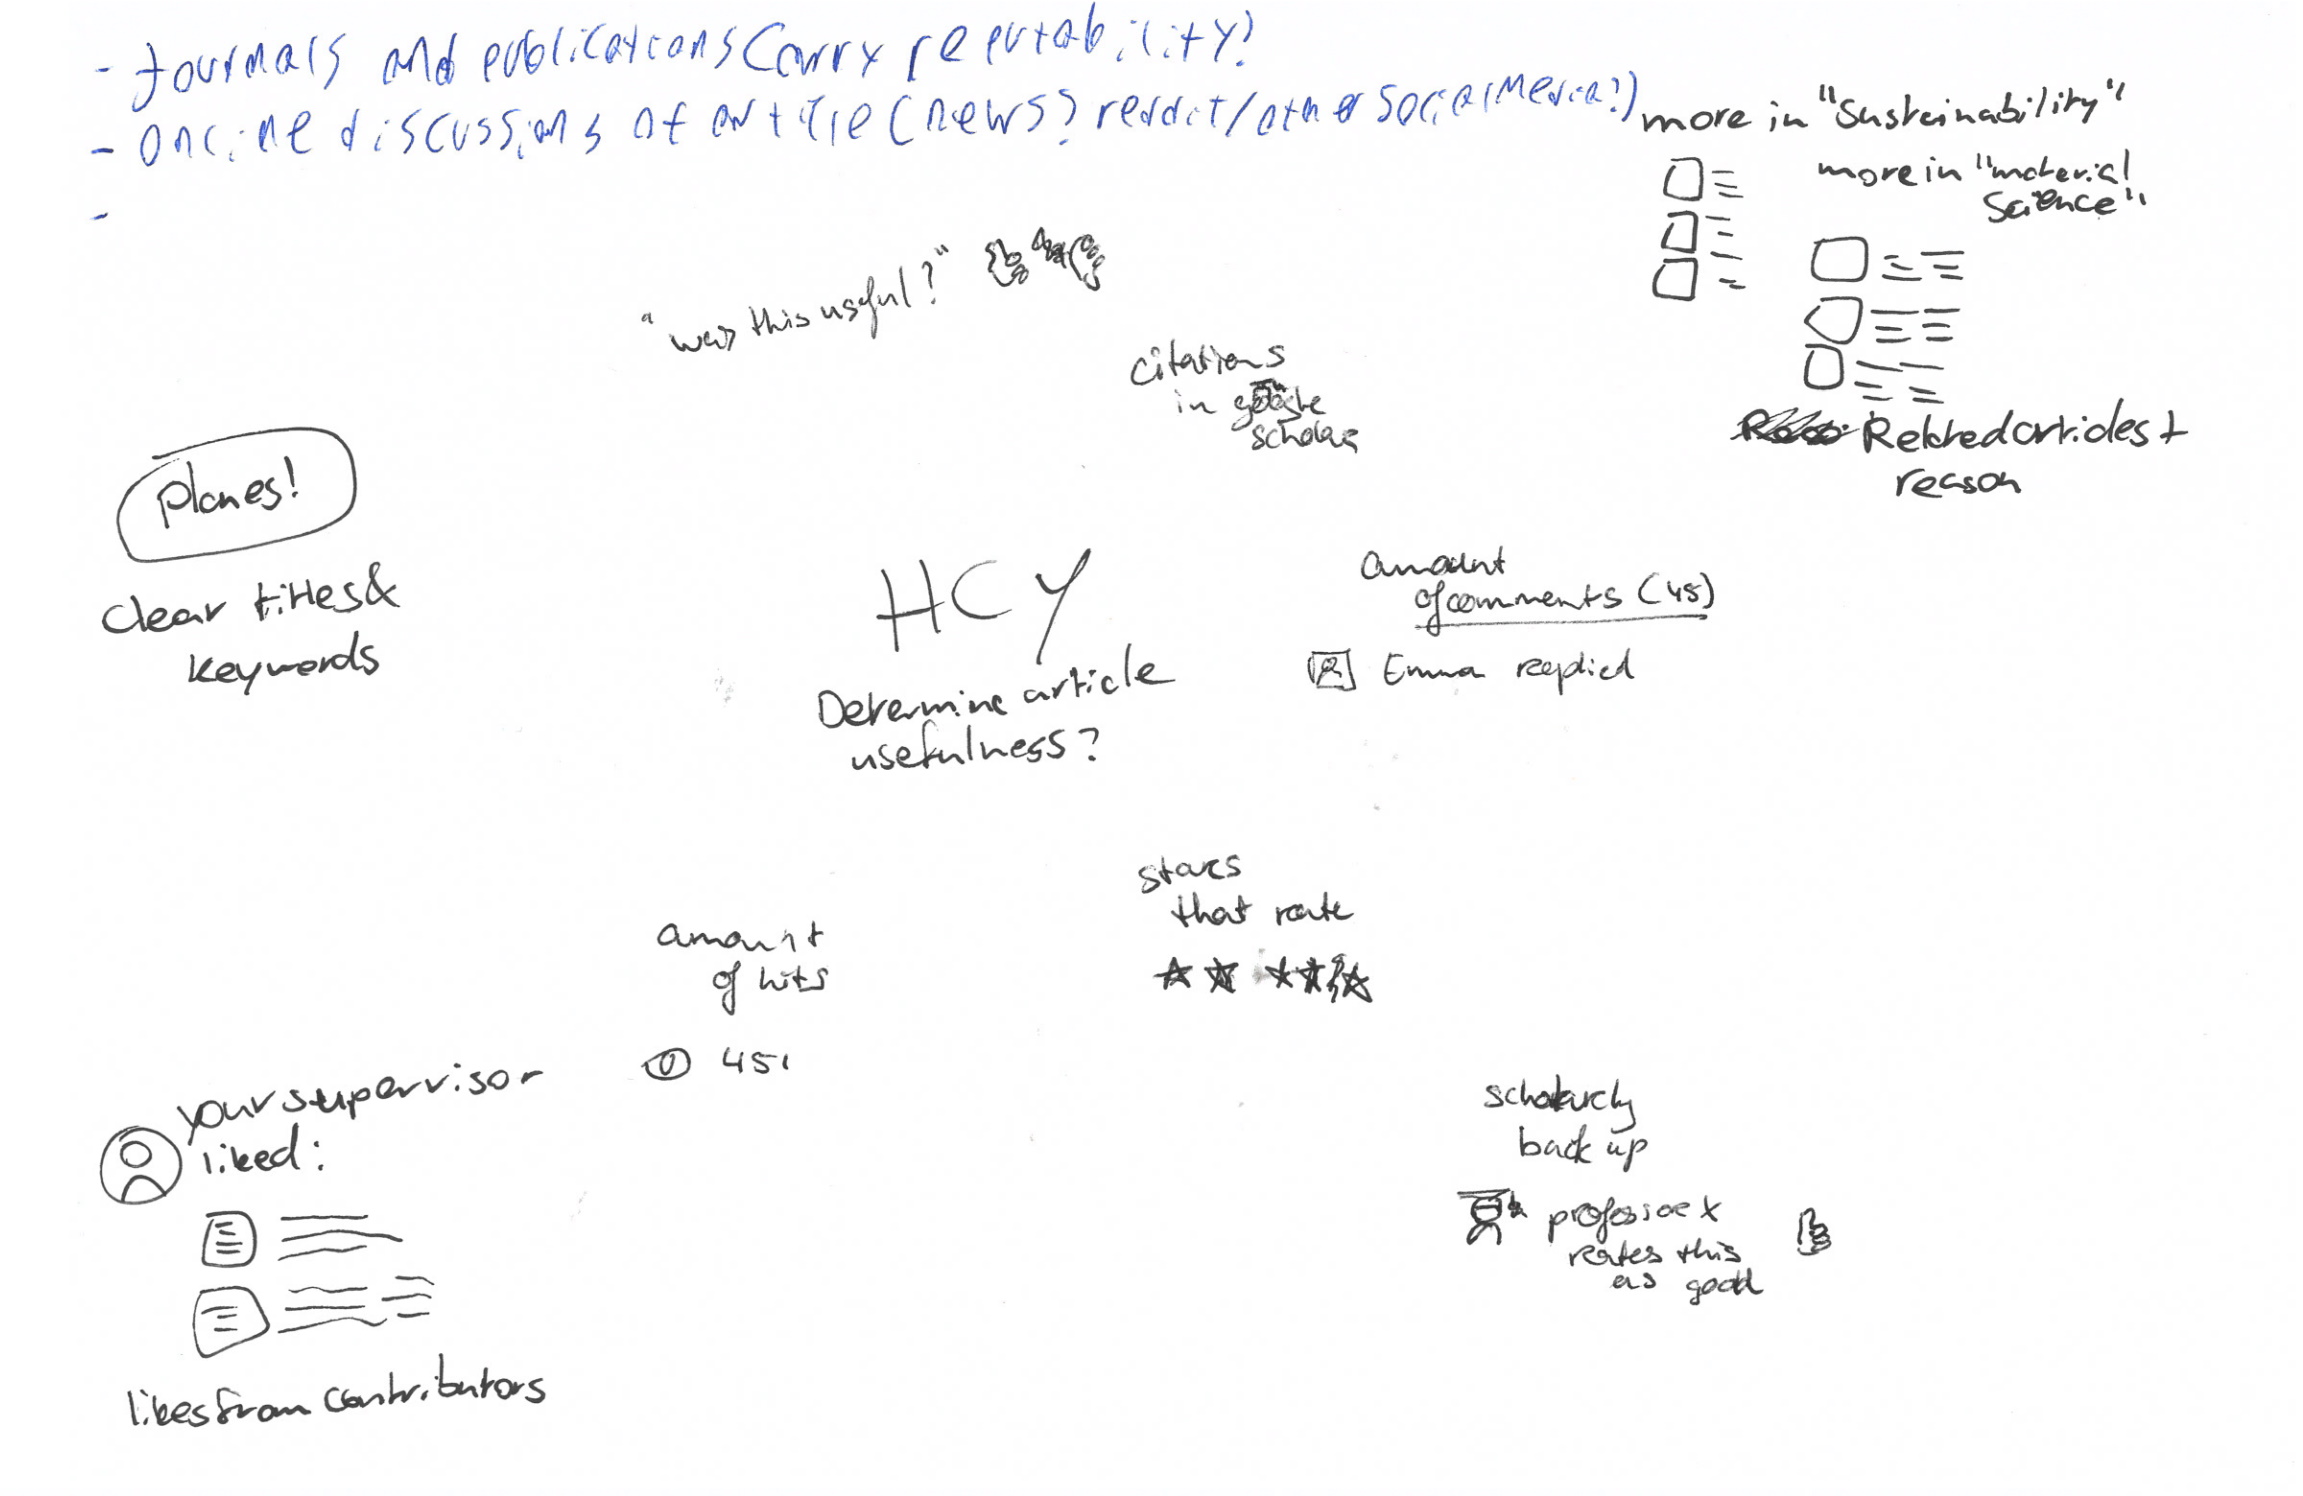 - Journals and publications carry reputability?
- online discussions of article (news? reddit/other social media?)
-
more in "Sustainability"
more in "material
Science"
"was this useful?"
citations
in google
scholar
Related articles +
reason
planes!
clear titles &
keywords
HCY
Determine article
usefulness?
amount
of comments (45)
Emma replied
stars
that rate
amount
of hits
451
your supervisor
liked:
likes from contributors
scholarly
back up
professor x
rates this
as good